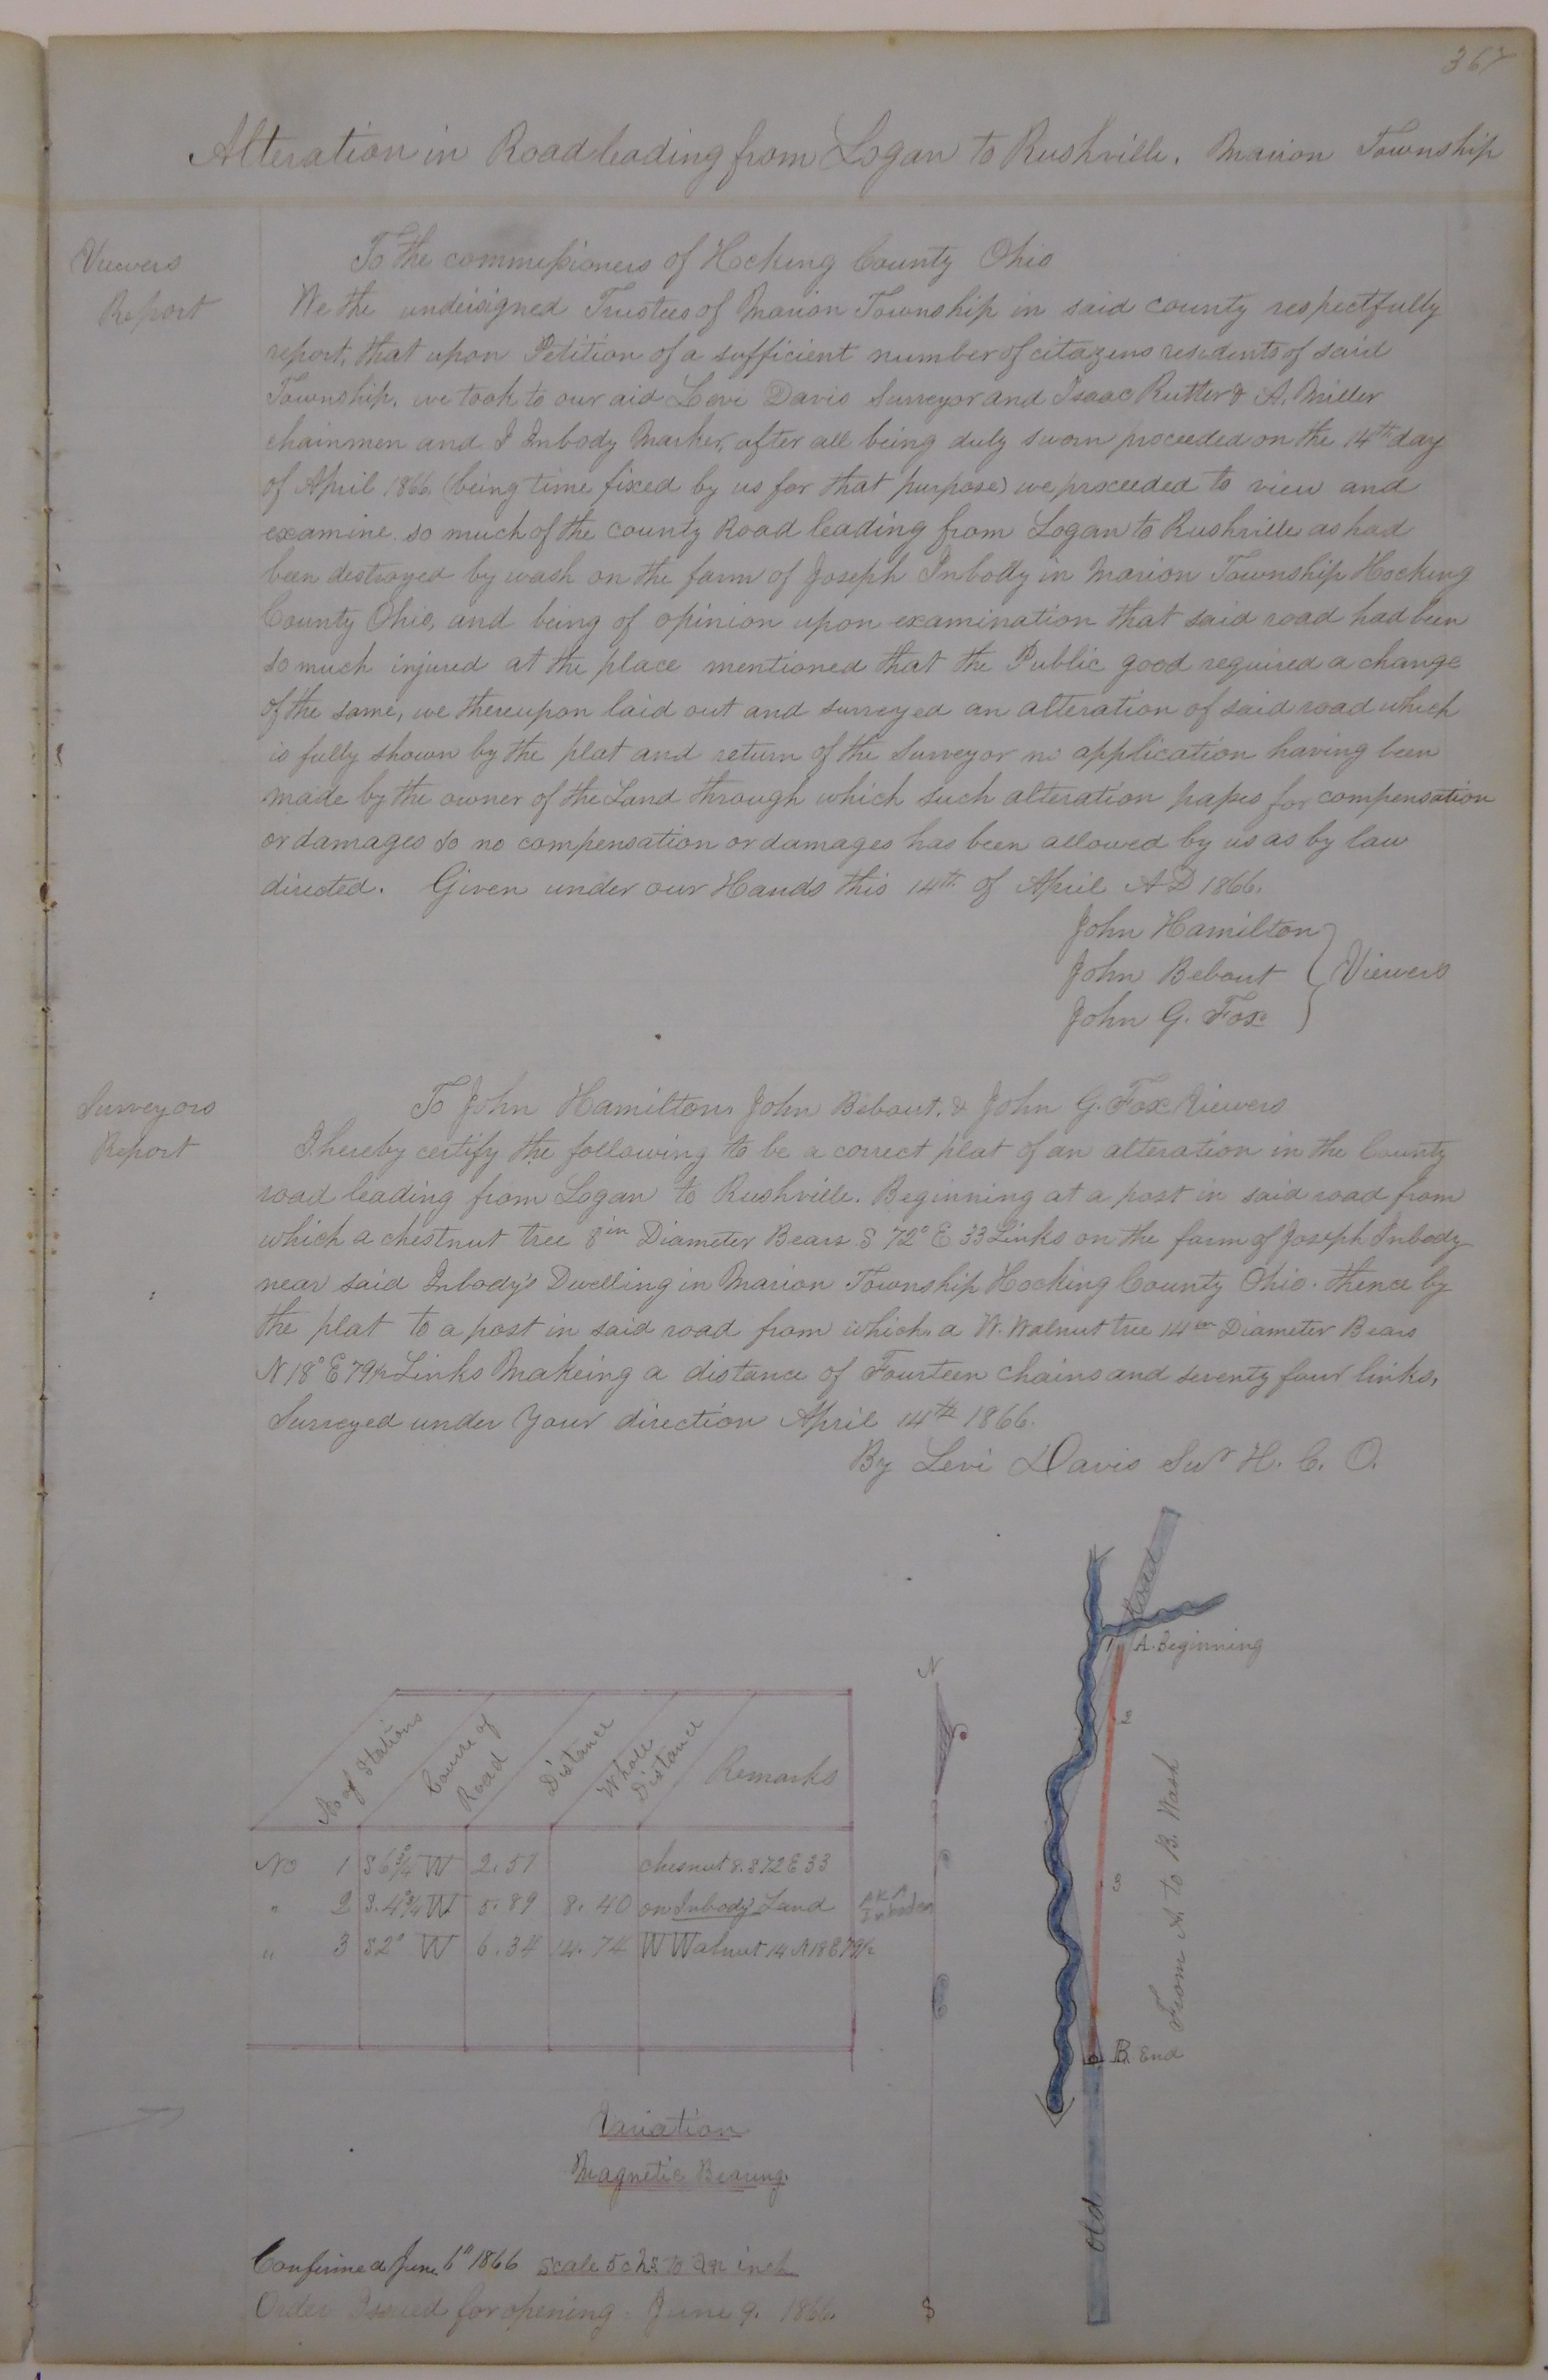 367
Alteration in Road leading from Logan to Rushville. Marion Township
Viewers
Report
To the commissioners of Hocking County Ohio
We the undersigned Trustees of Marion Township in said county respectfully
report, that upon Petition of a sufficient number of citazens residents of said
Township, we took to our aid Levi Davis Surveyor and Isaac Rutter & A. Miller
chainmen and J Inbody Marker, after all being duly sworn proceeded on the 14th day
of April 1866 (being time fixed by us for that purpose) we proceeded to view and
examine so much of the county Road leading from Logan to Rushville as had
been destroyed by wash on the farm of Joseph Inbody in Marion Township Hocking
County Ohio, and being of opinion upon examination that said road had been
so much injured at the place mentioned that the Public good required a change
of the same, we thereupon laid out and surveyed an alteration of said road which
is fully shown by the plat and return of the Surveyor no application having been
made by the owner of the Land through which such alteration passes for compensation
or damages so no compensation or damages has been allowed by us as by law
directed. Given under our Hands this 14th of April AD 1866.
John Hamilton
John Bebout
John G. Fox
Viewers
Surveyors
Report
To John Hamilton, John Bebout, & John G. Fox Viewers
I hereby certify the following to be a correct plat of an alteration in the County
road leading from Logan to Rushville. Beginning at a post in said road from
which a chestnut tree 8in Diameter Bears S 72° E 33 Links on the farm of Joseph Inbody
near said Inbody's Dwelling in Marion Township Hocking County Ohio. thence by
the plat to a post in said road from which a W. Walnut tree 14in Diameter Bears
N 18° E 79½ Links Makeing a distance of Fourteen chains and seventy four links,
Surveyed under Your direction April 14th 1866.
By Levi Davis Sur H. C. O.
Road
A. Beginning
N
2
No of Stations
Course of Road
Distance
Whole Distance
Remarks
No 1 S 6¾° W 2.51 chesnut 8. S 72 E 33
" 2 S. 4¾ W 5.89 8.40 on Inbody's Land
AKA
Inboden
" 3 S 2° W 6.34 14.74 W Walnut 14 N 18 E 79½
3
From A to B. Wash
B. End
Variation
Magnetic Bearing.
old
Confirmed June 6th 1866 Scale 5 chs. to an inch
Order Issued for opening June 9. 1866.
S